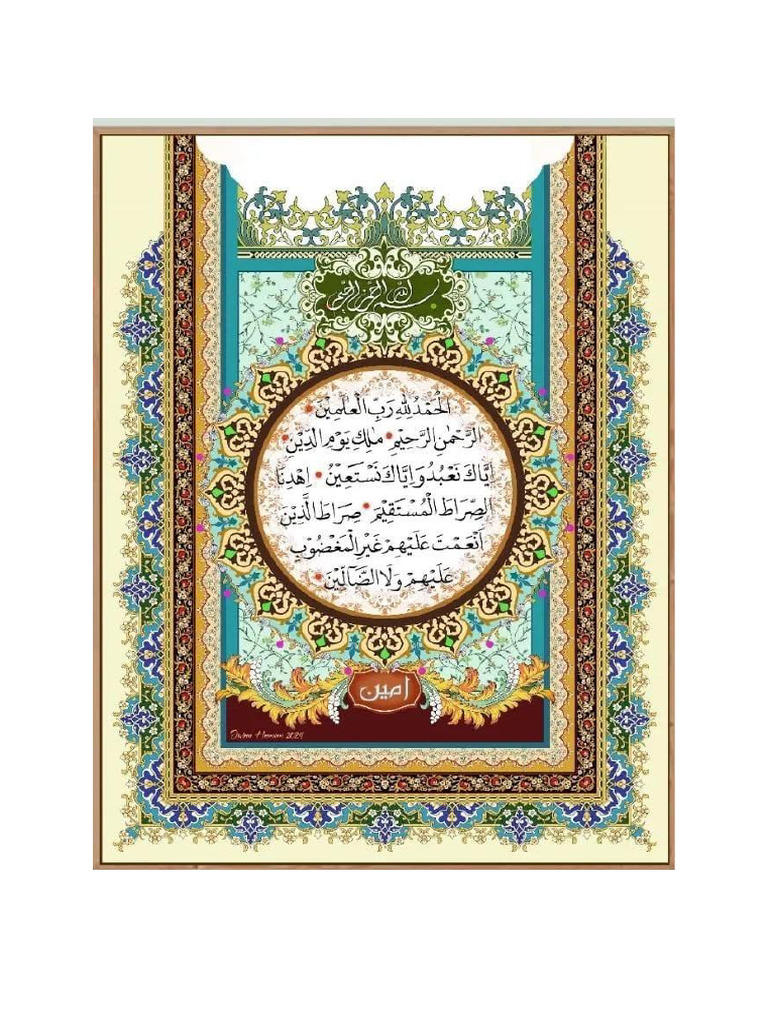 بسم الله الرحمن الرحيم
اَلْحَمْدُ لِلّٰهِ رَبِّ الْعٰلَمِيْنَ
الرَّحْمٰنِ الرَّحِيْمِ مٰلِكِ يَوْمِ الدِّيْنِ
اِيَّاكَ نَعْبُدُ وَاِيَّاكَ نَسْتَعِيْنُ اِهْدِنَا
الصِّرَاطَ الْمُسْتَقِيْمَ صِرَاطَ الَّذِيْنَ
اَنْعَمْتَ عَلَيْهِمْ غَيْرِ الْمَغْضُوْبِ
عَلَيْهِمْ وَلَا الضَّآلِّيْنَ
امين
2024